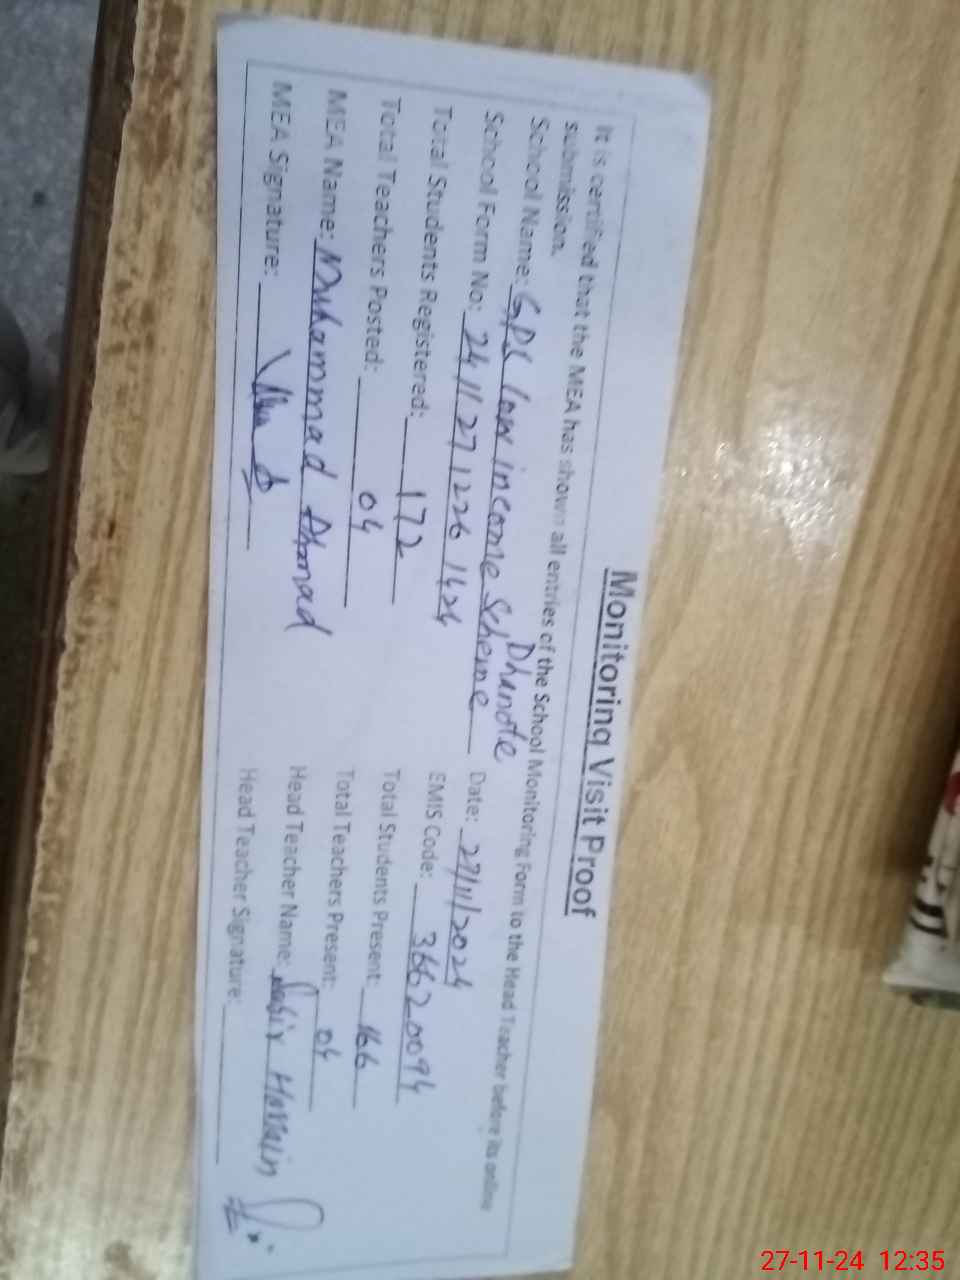 Monitoring Visit Proof
It is certified that the MEA has shown all entries of the School Monitoring Form to the Head Teacher before its online
submission.
Dhanote
School Name: GPS low income Scheme Date: 27/11/2024
School Form No: 241127 1226 1424 EMIS Code: 36620094
Total Students Registered: 172 Total Students Present: 166
Total Teachers Posted: 04 Total Teachers Present: 04
MEA Name: Muhammad Ahmad Head Teacher Name: Sabir Hussain
MEA Signature: Head Teacher Signature:
27-11-24 12:35